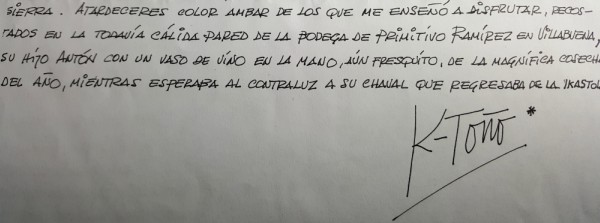 SIERRA. ATARDECERES COLOR AMBAR DE LOS QUE ME ENSEÑÓ A DISFRUTAR, RECOS-
TADOS EN LA TODAVÍA CÁLIDA PARED DE LA BODEGA DE PRIMITIVO RAMÍREZ EN VILLABUENA,
SU HIJO ANTÓN CON UN VASO DE VINO EN LA MANO, AÚN FRESQUITO, DE LA MAGNÍFICA COSECHA
DEL AÑO, MIENTRAS ESPERABA AL CONTRALUZ A SU CHAVAL QUE REGRESABA DE LA IKASTOL
K-TOÑO *